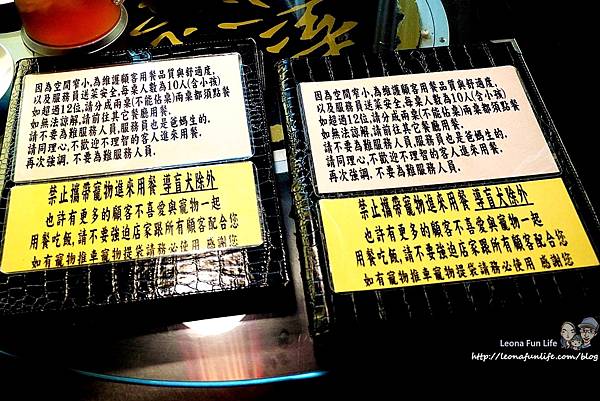 因為空間窄小,為維護顧客用餐品質與舒適度,
以及服務員送菜安全,每桌人數為10人(含小孩)
如超過12位,請分成兩桌(不能佔桌)兩桌都須點餐
如無法諒解,請前往其它餐廳用餐.
請不要為難服務人員,服務員也是爸媽生的.
請同理心,不歡迎不理智的客人進來用餐.
再次強調,不要為難服務人員.
禁止攜帶寵物進來用餐 導盲犬除外
也許有更多的顧客不喜愛與寵物一起
用餐吃飯,請不要強迫店家跟所有顧客配合您
如有寵物推車寵物提袋請務必使用 感謝您
因為空間窄小,為維護顧客用餐品質與舒適度,
以及服務員送菜安全,每桌人數為10人(含小孩)
如超過12位,請分成兩桌(不能佔桌)兩桌都須點餐
如無法諒解,請前往其它餐廳用餐.
請不要為難服務人員,服務員也是爸媽生的.
請同理心,不歡迎不理智的客人進來用餐.
再次強調,不要為難服務人員.
禁止攜帶寵物進來用餐 導盲犬除外
也許有更多的顧客不喜愛與寵物一起
用餐吃飯,請不要強迫店家跟所有顧客配合您
如有寵物推車寵物提袋請務必使用 感謝您
Leona Fun Life
http://leonafunlife.com/blog